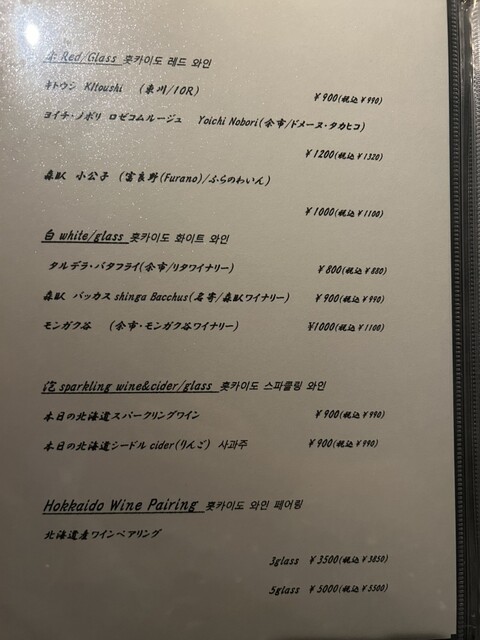 赤 Red/Glass 홋카이도 레드 와인
キトウシ KItoushi (東川/10R)
¥900(税込¥990)
ヨイチ・ノボリ ロゼコムルージュ Yoichi Nobori(余市/ドメーヌ・タカヒコ)
¥1200(税込¥1320)
森臥 小公子 (富良野(Furano)/ふらのわいん)
¥1000(税込¥1100)
白 white/glass 홋카이도 화이트 와인
タルデラ・バタフライ(余市/リタワイナリー) ¥800(税込¥880)
森臥 バッカス shinga Bacchus(名寄/森臥ワイナリー) ¥900(税込¥990)
モンガク谷 (余市・モンガク谷ワイナリー) ¥1000(税込¥1100)
泡 sparkling wine&cider/glass 홋카이도 스파클링 와인
本日の北海道スパークリングワイン ¥900(税込¥990)
本日の北海道シードル cider(りんご) 사과주 ¥900(税込¥990)
Hokkaido Wine Pairing 홋카이도 와인 페어링
北海道産ワインペアリング
3glass ¥3500(税込¥3850)
5glass ¥5000(税込¥5500)